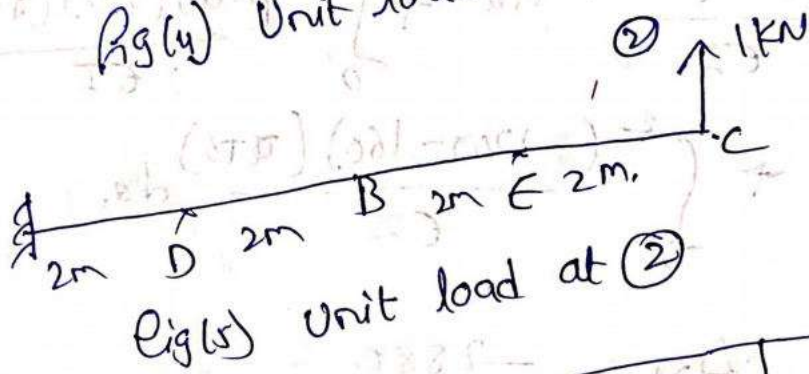 Fig(4) Unit
② 1KN
C
2m D 2m B 2m E 2m.
Fig(5) Unit load at ②